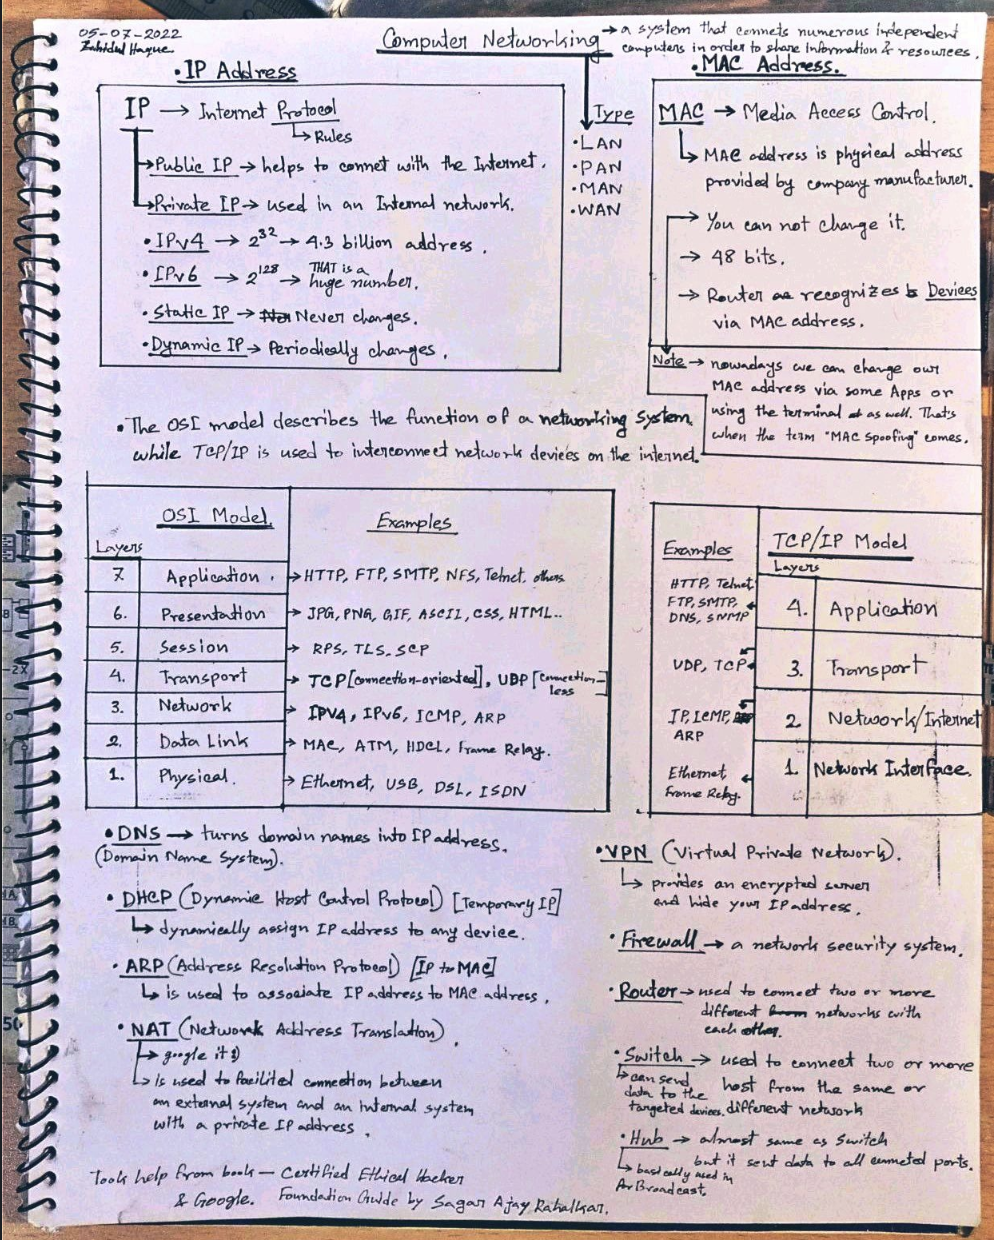 05-07-2022
Zahidul Haque
Computer Networking → a system that connets numerous independent
computers in order to share information & resources.
• IP Address
IP → Internet Protocol
↳ Rules
→ Public IP → helps to connet with the Internet.
→ Private IP → used in an Internal network.
• IPv4 → 2^32 → 4.3 billion address.
• IPv6 → 2^128 → THAT is a
huge number.
• Static IP → Never changes.
• Dynamic IP → Periodically changes.
Type
• LAN
• PAN
• MAN
• WAN
• MAC Address.
MAC → Media Access Control.
↳ MAC address is physical address
provided by company manufacturer.
→ You can not change it.
→ 48 bits.
→ Router recognizes Devices
via MAC address.
Note → nowadays we can change our
MAC address via some Apps or
using the terminal as well. That's
when the term "MAC spoofing" comes.
• The OSI model describes the function of a networking system
while TCP/IP is used to interconnect network devices on the internet.
OSI Model Examples
Layers
7. Application. → HTTP, FTP, SMTP, NFS, Telnet, others
6. Presentation → JPG, PNG, GIF, ASCIL, CSS, HTML..
5. Session → RPS, TLS, SCP
4. Transport → TCP [connection-oriented], UBP [connection-
less]
3. Network → IPV4, IPv6, ICMP, ARP
2. Data Link → MAC, ATM, HDCL, Frame Relay.
1. Physical. → Ethernet, USB, DSL, ISDN
Examples
TCP/IP Model
Layers
HTTP, Telnet
FTP, SMTP,
DNS, SNMP
4. Application
UDP, TCP
3. Transport
IP, ICMP,
ARP
2 Network/Internet
Ethernet
Frame Relay.
1. Network Interface.
• DNS → turns domain names into IP address.
(Domain Name System).
• DHCP (Dynamic Host Control Protocol) [Temporary IP]
↳ dynamically assign IP address to any device.
• ARP (Address Resolution Protocol) [IP to MAC]
↳ is used to associate IP address to MAC address.
• NAT (Network Address Translation).
→ google it :)
↳ is used to facilited connection between
an external system and an internal system
with a private IP address.
• VPN (Virtual Private Network).
↳ provides an encrypted server
and hide your IP address.
• Firewall → a network security system.
• Router → used to connect two or more
different networks with
each other.
• Switch → used to connect two or more
host from the same or
different network
↳ can send
data to the
targeted devices.
• Hub → almost same as Switch
but it sent data to all conneted ports.
↳ basically used in
Broadcast.
Took help from book — Certified Ethical Hacker
& Google. Foundation Guide by Sagar Ajay Rahalkar.